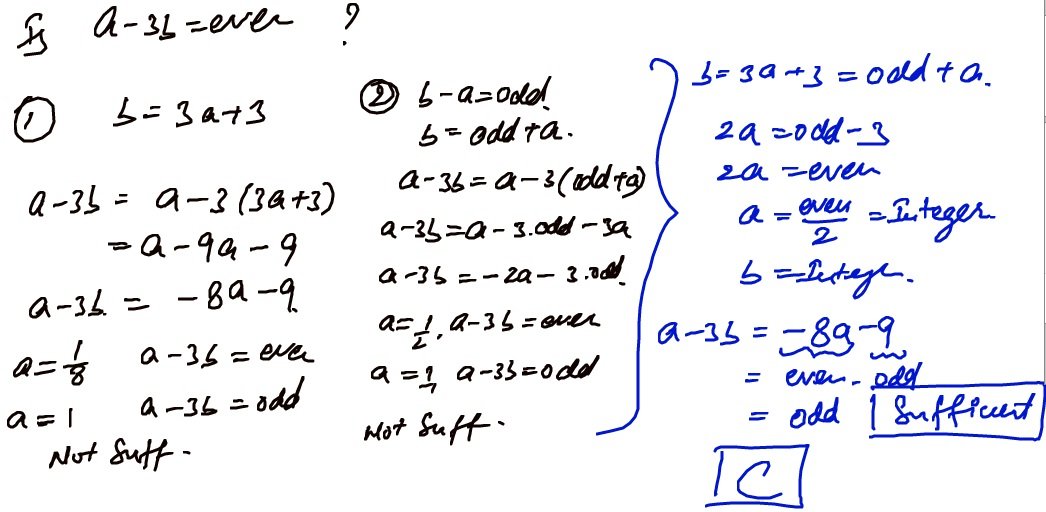 Is a-3b=even ?
① b= 3a+3
a-3b = a-3(3a+3)
= a-9a-9
a-3b = -8a-9
a=1/8 a-3b = even
a=1 a-3b = odd
Not Suff.
② b-a=odd
b= odd+a.
a-3b= a-3(odd+a)
a-3b=a-3.odd-3a
a-3b = -2a-3.odd
a=1/2, a-3b=even
a=1, a-3b=odd
Not Suff.
b=3a+3 = odd+a.
2a =odd-3
2a =even
a = even/2 =Integer.
b =Integer.
a-3b = -8a-9
= even-odd
= odd | Sufficient
C